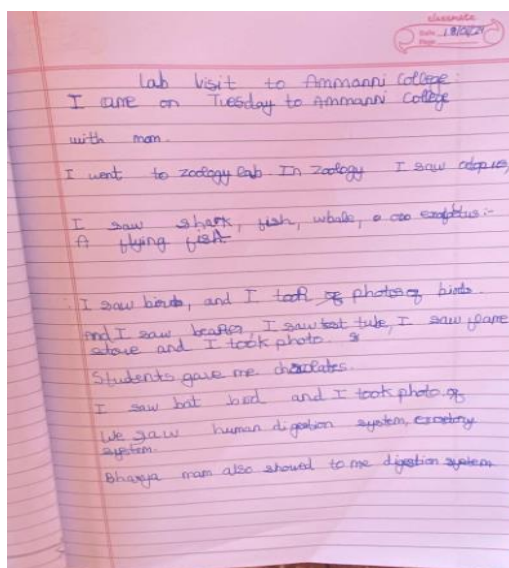 classmate
Date
Page
Lab visit to Ammanni College:
I came on Tuesday to Ammanni College
with mam.
I went to zoology lab. In zoology I saw
I saw shark, fish, whale,
A flying fish
I saw birds, and I took photos of birds.
And I saw beaker, I saw test tube, I saw flame
stove and I took photo.
Students gave me chocolates.
I saw bat bird and I took photo of
We saw human digestion system, excretory
system.
Bhavya mam also showed to me digestion system